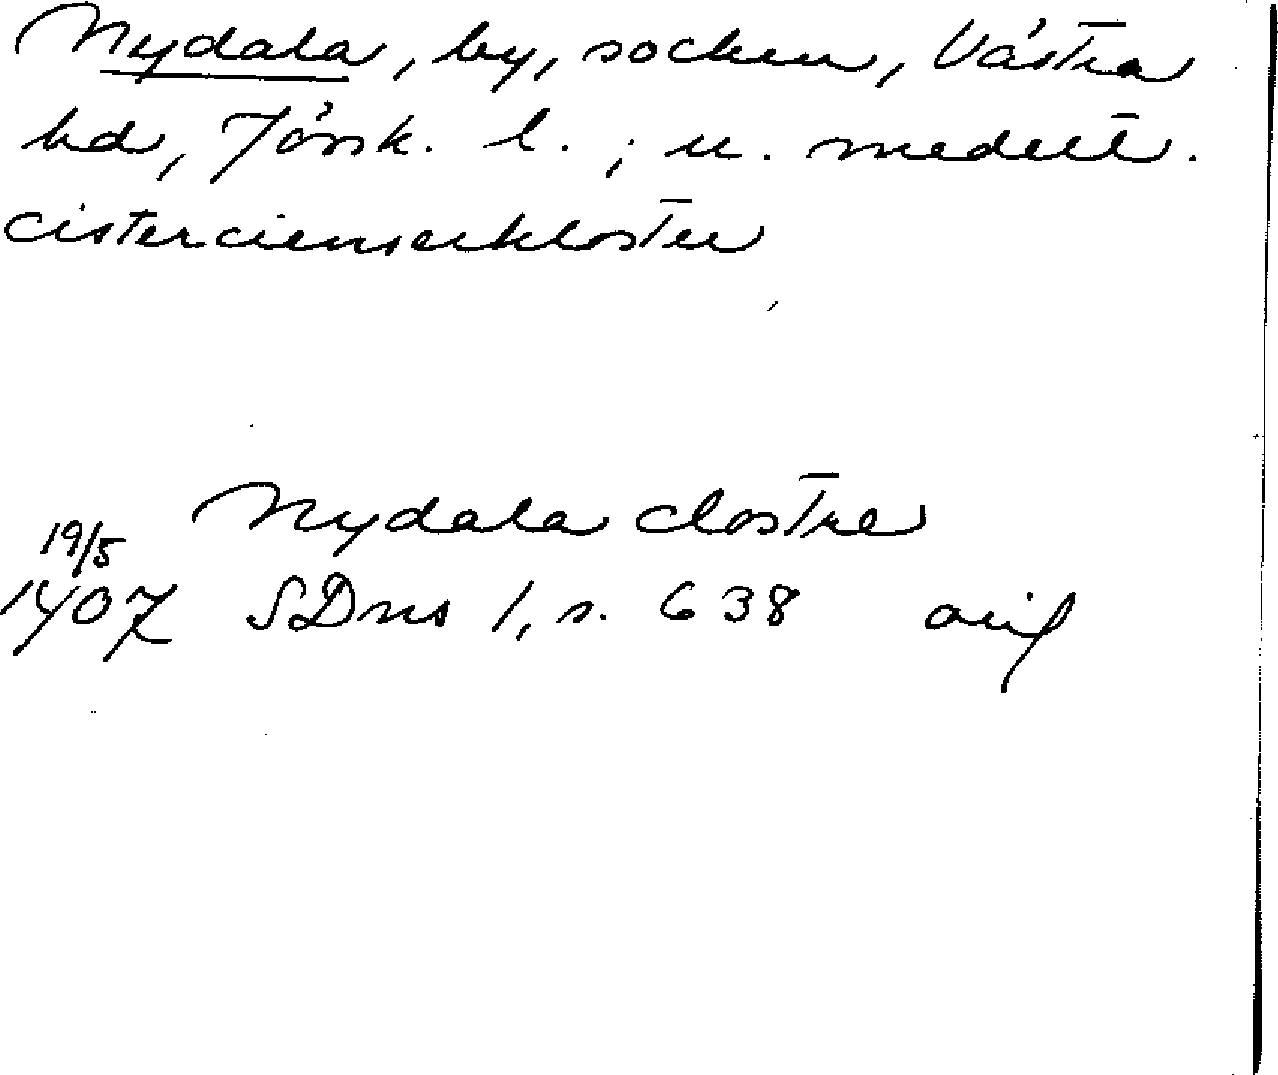 Nydala, by, socken, Västra
hd, Jönk. l. ; u. medelt.
cistercienserkloster
Nydala clostre
19/5
1407 SDns 1, s. 638